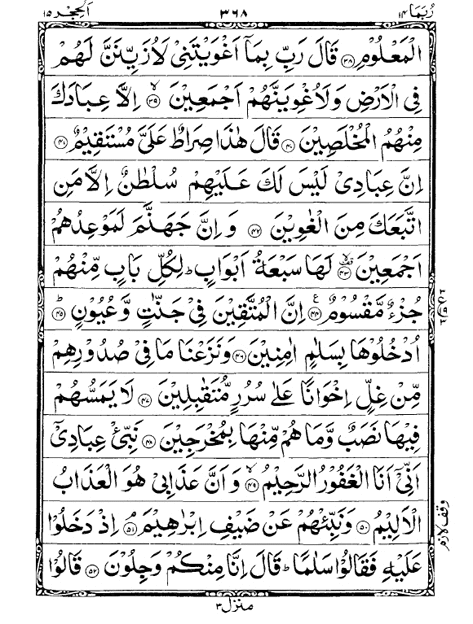 رُبَمَا ١٤ ٣٦٨ اَلْحِجْر ١٥
الْمَعْلُوْمِ ﴿٣٨﴾ قَالَ رَبِّ بِمَاۤ اَغْوَيْتَنِيْ لَاُزَيِّنَنَّ لَهُمْ
فِي الْاَرْضِ وَلَاُغْوِيَنَّهُمْ اَجْمَعِيْنَ ﴿٣٩﴾ اِلَّا عِبَادَكَ
مِنْهُمُ الْمُخْلَصِيْنَ ﴿٤٠﴾ قَالَ هٰذَا صِرَاطٌ عَلَيَّ مُسْتَقِيْمٌ ﴿٤١﴾
اِنَّ عِبَادِيْ لَيْسَ لَكَ عَلَيْهِمْ سُلْطٰنٌ اِلَّا مَنِ
اتَّبَعَكَ مِنَ الْغٰوِيْنَ ﴿٤٢﴾ وَاِنَّ جَهَنَّمَ لَمَوْعِدُهُمْ
اَجْمَعِيْنَ ﴿٤٣﴾ لَهَا سَبْعَةُ اَبْوَابٍ ؕ لِكُلِّ بَابٍ مِّنْهُمْ
جُزْءٌ مَّقْسُوْمٌ ﴿٤٤﴾ اِنَّ الْمُتَّقِيْنَ فِيْ جَنّٰتٍ وَّعُيُوْنٍ ﴿٤٥﴾ؕ
اُدْخُلُوْهَا بِسَلٰمٍ اٰمِنِيْنَ ﴿٤٦﴾ وَنَزَعْنَا مَا فِيْ صُدُوْرِهِمْ
مِّنْ غِلٍّ اِخْوَانًا عَلٰى سُرُرٍ مُّتَقٰبِلِيْنَ ﴿٤٧﴾ لَا يَمَسُّهُمْ
فِيْهَا نَصَبٌ وَّمَا هُمْ مِّنْهَا بِمُخْرَجِيْنَ ﴿٤٨﴾ نَبِّئْ عِبَادِيْۤ
اَنِّيْۤ اَنَا الْغَفُوْرُ الرَّحِيْمُ ﴿٤٩﴾ وَاَنَّ عَذَابِيْ هُوَ الْعَذَابُ
الْاَلِيْمُ ﴿٥٠﴾ وَنَبِّئْهُمْ عَنْ ضَيْفِ اِبْرٰهِيْمَ ﴿٥١﴾ اِذْ دَخَلُوْا
عَلَيْهِ فَقَالُوْا سَلٰمًا ؕ قَالَ اِنَّا مِنْكُمْ وَجِلُوْنَ ﴿٥٢﴾ قَالُوْا
وقف لازم
منزل ٣